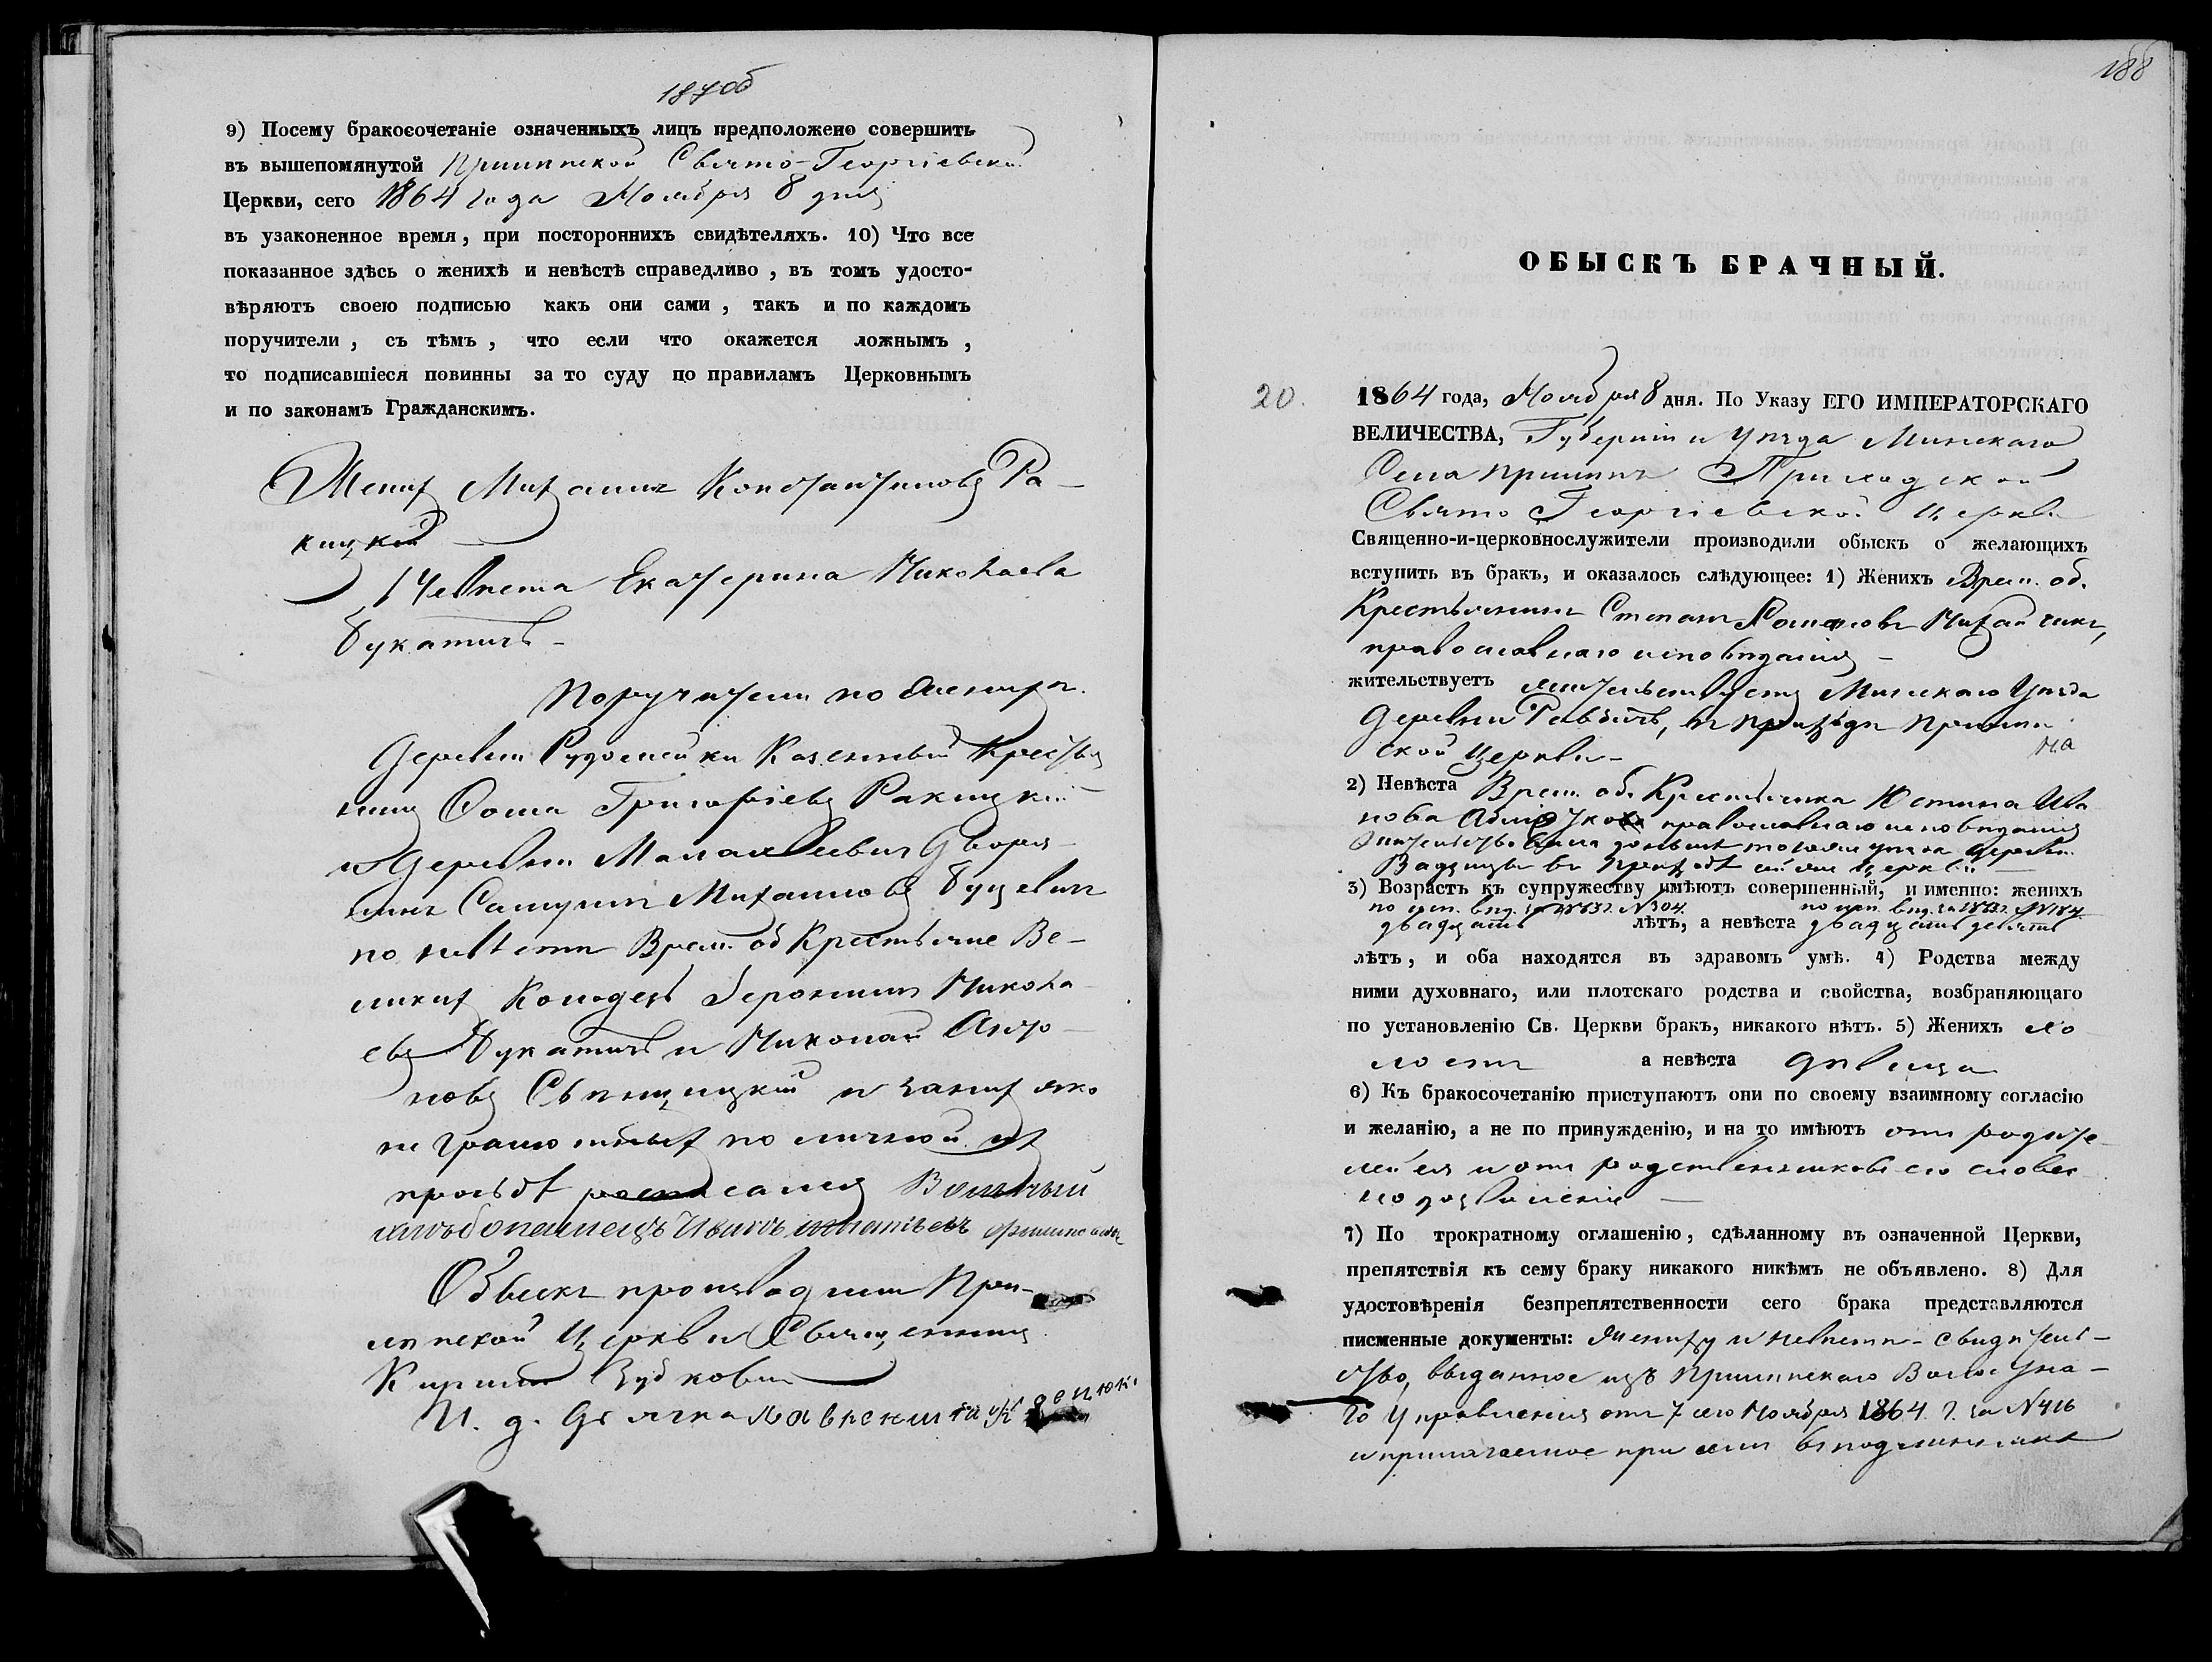 187об
9) Посему бракосочетаніе означенныхъ лицъ предположено совершить
въ вышепомянутой Прилипской Свято-Георгіевской
Церкви, сего 1864 года Ноября 8 дня
въ узаконенное время, при постороннихъ свидѣтеляхъ. 10) Что все
показанное здѣсь о женихѣ и невѣстѣ справедливо, въ томъ удосто-
вѣряютъ своею подписью какъ они сами, такъ и по каждомъ
поручители, съ тѣмъ, что если что окажется ложнымъ,
то подписавшіеся повинны за то суду по правиламъ Церковнымъ
и по законамъ Гражданскимъ.
Женихъ Михаилъ Константиновъ Ра-
кицкій
Невѣста Екатерина Николаева
Букатичъ
Поручители по женихѣ
Деревни Рудомейки Казенный Крестья
нинъ Ѳома Григорьевъ Ракицкій
и Деревни Дворя-
нинъ Самуилъ Михаиловъ Буцевичъ
по невѣстѣ Врем. об. Крестьяне Ве-
ликихъ Колодезь Іеронимъ Никола
евъ Букатичъ и Николай
новъ и за нихъ яко
не грамотныхъ по личной ихъ
прозьбѣ росписался Вольный
хлѣбопашецъ Иванъ Игнатьевъ
Обыскъ производили При-
липской Церкви Священникъ
Кирилъ Зубковичъ
И. д. Дьячка Лаврентій
188
ОБЫСКЪ БРАЧНЫЙ.
20. 1864 года, Ноября 8 дня. По Указу ЕГО ИМПЕРАТОРСКАГО
ВЕЛИЧЕСТВА, Губерніи и Уѣзда Минскаго
Села Прилипъ Приходской
Свято Георгіевской Церкви
Священно-и-церковнослужители производили обыскъ о желающихъ
вступить въ бракъ, и оказалось слѣдующее: 1) Женихъ Врем. об.
Крестьянинъ Степанъ Михайчикъ,
православнаго исповѣданія
жительствуетъ жительствуетъ Минскаго Уѣзда
Деревни Ревбичъ, въ приходѣ Прилип
ской Церкви
2) Невѣста Врем. об. Крестьянка Юстина Ива
нова православнаго исповѣданія
Жительствовала тогоже уѣзда деревни
въ приходѣ сей же Церкви
3) Возрастъ къ супружеству имѣютъ совершенный, и именно: женихъ
по исп. вѣд. за 1863 г. N 304. по исп. вѣд. за 1863 г. N 184
двадцать лѣтъ, а невѣста двадцать девять
лѣтъ, и оба находятся въ здравомъ умѣ. 4) Родства между
ними духовнаго, или плотскаго родства и свойства, возбраняющаго
по установленію Св. Церкви бракъ, никакого нѣтъ. 5) Женихъ хо
лостъ а невѣста дѣвица
6) Къ бракосочетанію приступаютъ они по своему взаимному согласію
и желанію, а не по принужденію, и на то имѣютъ отъ родите
лей ея и отъ родственниковъ его словес
но дозволеніе
7) По трократному оглашенію, сдѣланному въ означенной Церкви,
препятствія къ сему браку никакого никѣмъ не объявлено. 8) Для
удостовѣренія безпрепятственности сего брака представляются
писменные документы: Жениху и невѣстѣ - свидѣтель-
ство, выданное изъ Прилипскаго Волостна-
го Управленія отъ 7 сего Ноября 1864 г. за N 416
и прилагаемое при семъ въ подлинникѣ